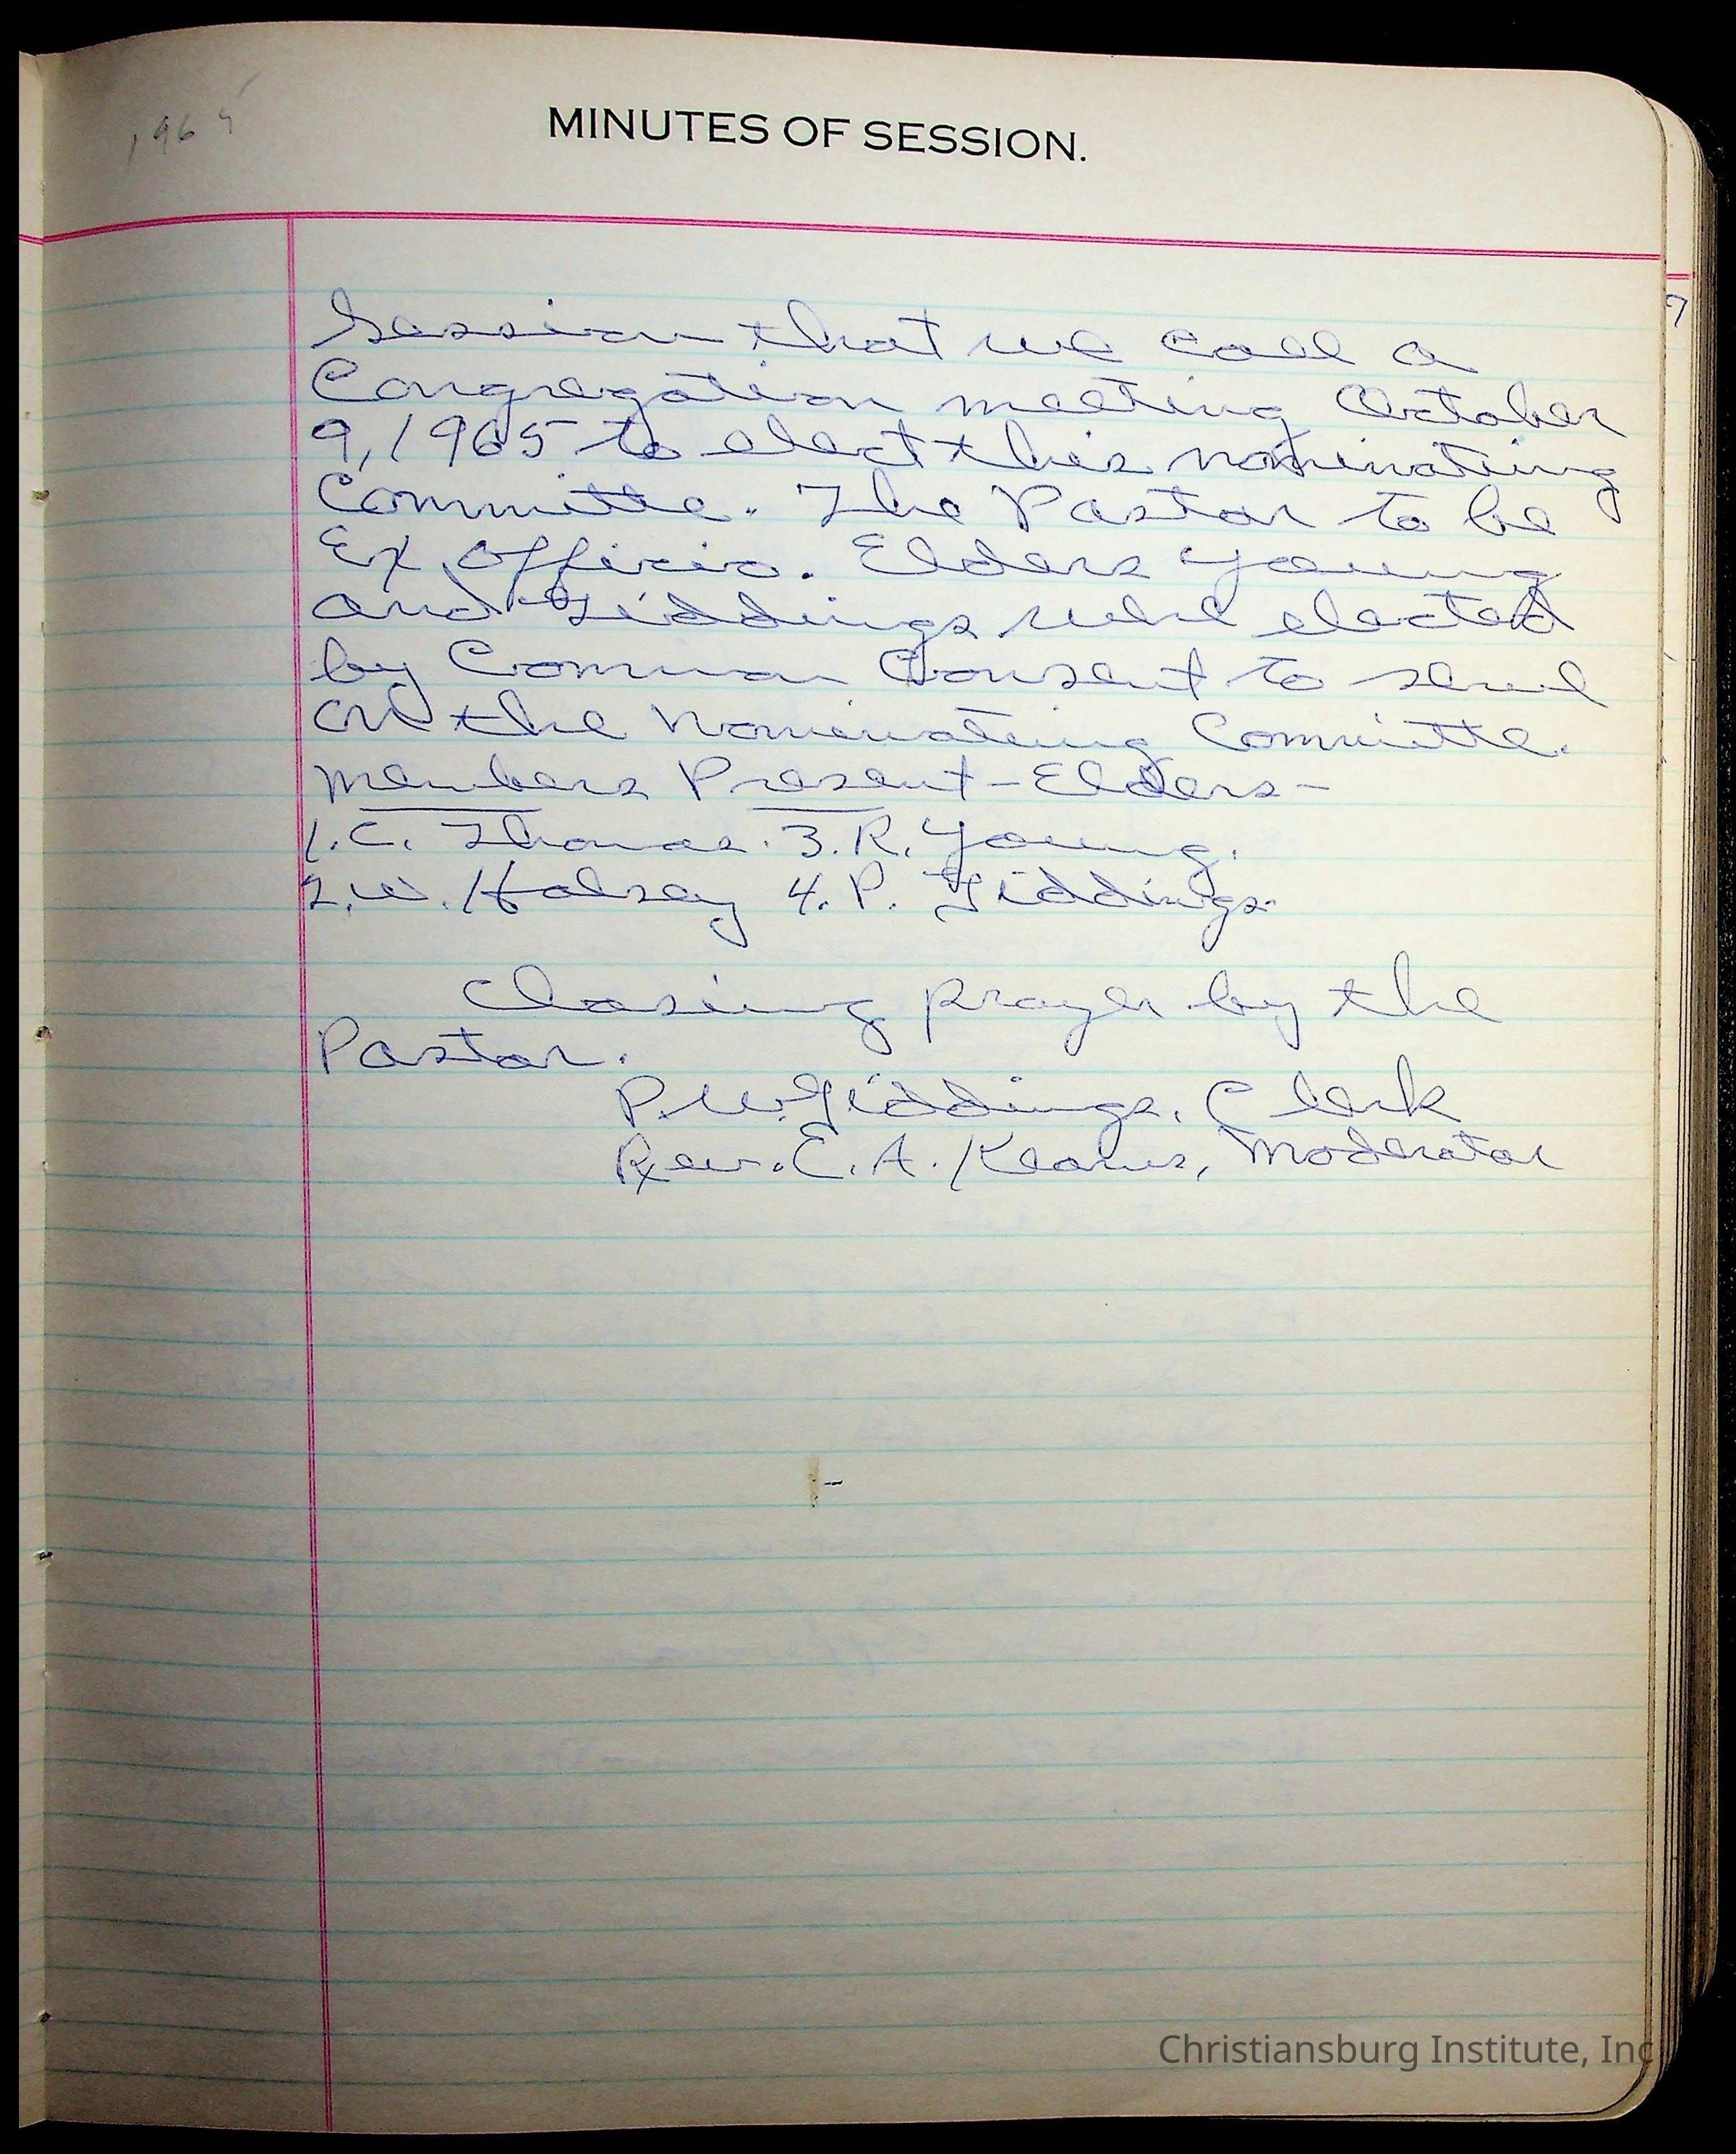 1965
MINUTES OF SESSION.
Session that we call a
Congregation meeting October
9, 1965 to elect this nominating
Committe. The Pastor to be
Ex Officio. Elders Young
and Giddings were elected
by Common Consent to serve
on the Nominating Committe.
Members Present - Elders -
1. C. Thomas. 3. R. Young.
2. W. Halsey 4. P. Giddings.
Closing prayer by the
Pastor.
P. W. Giddings, Clerk
Rev. E. A. Kearns, Moderator
Christiansburg Institute, Inc